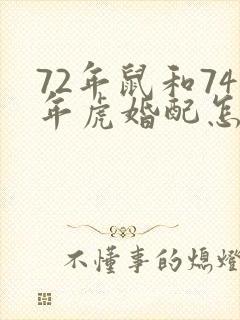 72年鼠和74
年虎婚配怎
不懂事的熄燈